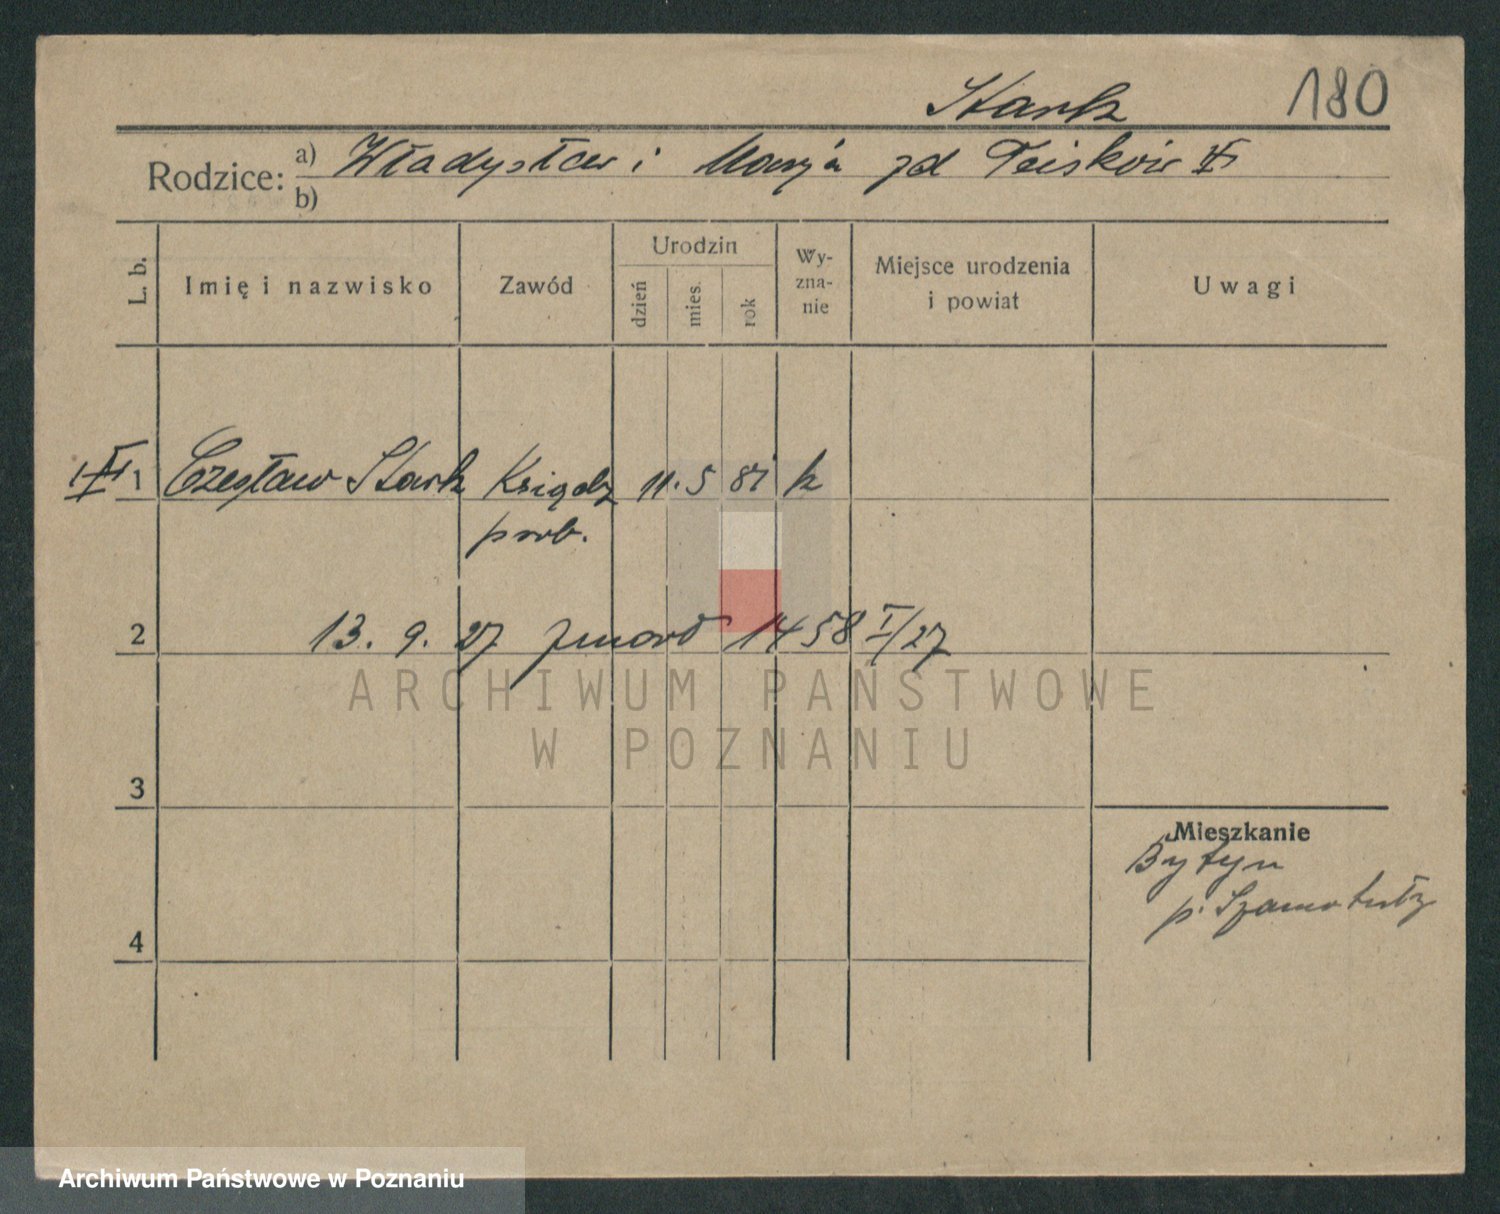 Stark
180
Rodzice: a) Władysław i Marja zd
b)
L. b.
Imię i nazwisko
Zawód
Urodzin
dzień
mies.
rok
Wy-
zna-
nie
Miejsce urodzenia
i powiat
Uwagi
1 Czesław Stark Ksiądz 11. 5 81 k
prob.
2 13. 9. 27 zmarł 1458 I/27
ARCHIWUM PAŃSTWOWE
W POZNANIU
3
Mieszkanie
Bytyn
p. Szamotuły
4
Archiwum Państwowe w Poznaniu